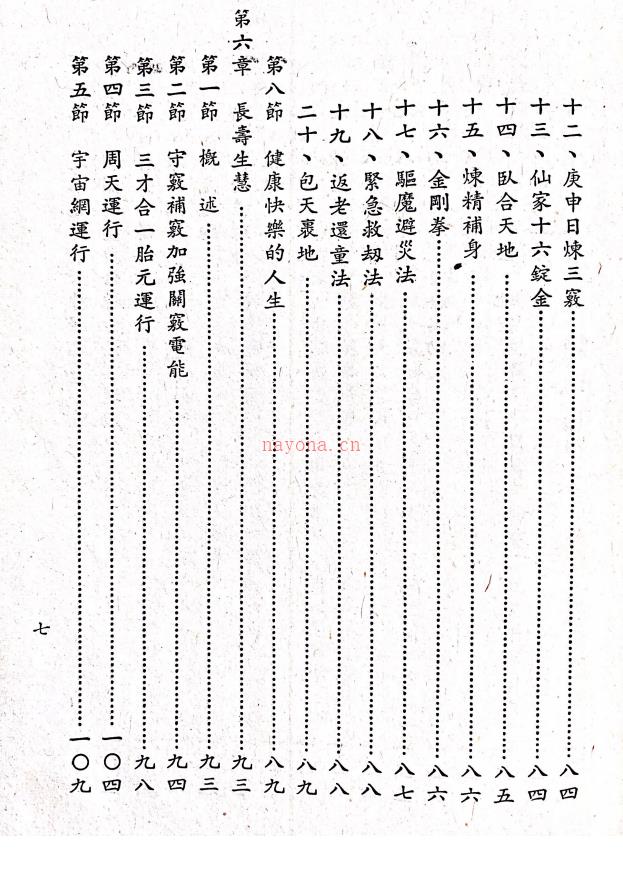 十二、庚申日煉三竅⋯⋯八四
十三、仙家十六錠金⋯⋯八四
十四、臥合天地⋯⋯八五
十五、煉精補身⋯⋯八六
十六、金剛拳⋯⋯八六
十七、驅魔避災法⋯⋯八七
十八、緊急救劫法⋯⋯八八
十九、返老還童法⋯⋯八八
二十、包天裹地⋯⋯八九
第八節 健康快樂的人生⋯⋯八九
第六章 長壽生慧⋯⋯九三
第一節 概述⋯⋯九三
第二節 守竅補竅加強關竅電能⋯⋯九四
第三節 三才合一胎元運行⋯⋯九八
第四節 周天運行⋯⋯一〇四
第五節 宇宙網運行⋯⋯一〇九
七
nayona.cn